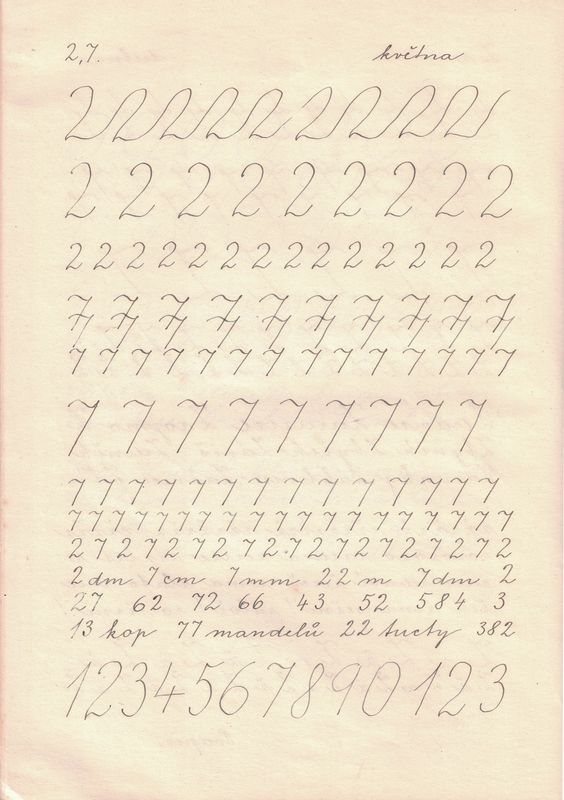 2,7. května
2 2 2 2 2 2 2 2 2
2 2 2 2 2 2 2 2 2
2 2 2 2 2 2 2 2 2 2 2 2 2 2
7 7 7 7 7 7 7 7 7 7
7 7 7 7 7 7 7 7 7 7 7 7 7 7
7 7 7 7 7 7 7 7 7
7 7 7 7 7 7 7 7 7 7 7 7 7 7
7 7 7 7 7 7 7 7 7 7 7 7 7 7 7 7 7 7 7 7
2 7 2 7 2 7 2 7 2 7 2 7 2 7 2 7 2 7 2
2 dm 7 cm 7 mm 22 m 7 dm 2
27 62 72 66 43 52 584 3
13 kop 77 mandelů 22 tucty 382
1234567890 123